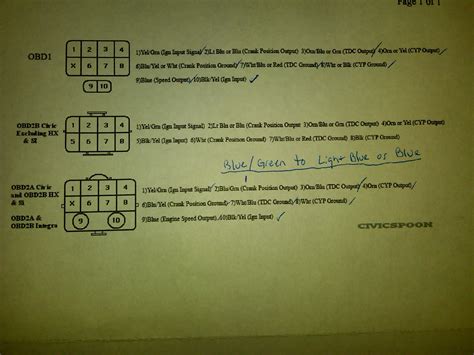 Page 1 of 1
OBD1
1 2 3 4
X 6 7 8
9 10
1)Yel/Grn (Ign Input Signal) 2)Lt Blu or Blu (Crank Position Output) 3)Orn/Blu or Grn (TDC Output) 4)Orn or Yel (CYP Output)
6)Blu/Yel or Wht (Crank Position Ground) 7)Wht/Blu or Red (TDC Ground) 8)Wht or Blk (CYP Ground)
9)Blue (Speed Output) 10)Blk/Yel (Ign Input)
OBD2B Civic
Excluding HX
& SI
1 2 3 4
5 6 7 8
1)Yel/Grn (Ign Input Signal) 2)Blu or Blu (Crank Position Output) 3)Orn/Blu or Grn (TDC Output) 4)Orn or Yel (CYP Output)
5)Blk/Yel (Ign Input) 6)Wht (Crank Position Ground) 7)Wht/Blu or Red (TDC Ground) 8)Blk (CYP Ground)
Blue/Green to Light Blue or Blue
OBD2A Civic
and OBD2B HX
& Si
OBD2A &
OBD2B Integra
1 2 3 4
X 6 7 8
9 10
1)Yel/Grn (Ign Input Signal) 2)Blu/Grn (Crank Position Output) 3)Orn/Blu (TDC Output) 4)Orn (CYP Output)
6)Blu/Yel (Crank Position Ground) 7)Wht/Blu (TDC Ground) 8)Wht (CYP Ground)
9)Blue (Engine Speed Output) 10)Blk/Yel (Ign Input)
CIVICSPOON